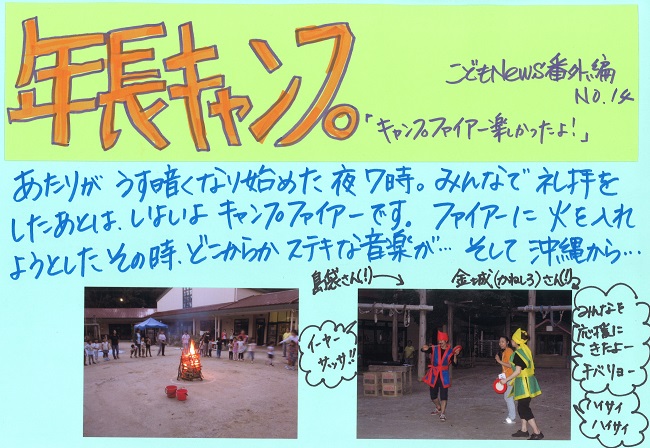 年長キャンプ。
こどもNews番外編
No.14
「キャンプファイアー楽しかったよ!」
あたりが うす暗くなり始めた 夜7時。みんなで礼拝を
したあとは、いよいよ キャンプファイアーです。 ファイアーに 火を入れ
ようとした その時、どこからか ステキな音楽が… そして 沖縄から…
島袋さん(!)→
金城(かねしろ)さん(!)
イーヤー
サッサ!!
みんなを
応援に
きたよー
チバリョー
ハイサイ
ハイサイ